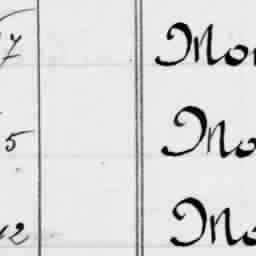 7 Mon
5 Mo
12 Mo